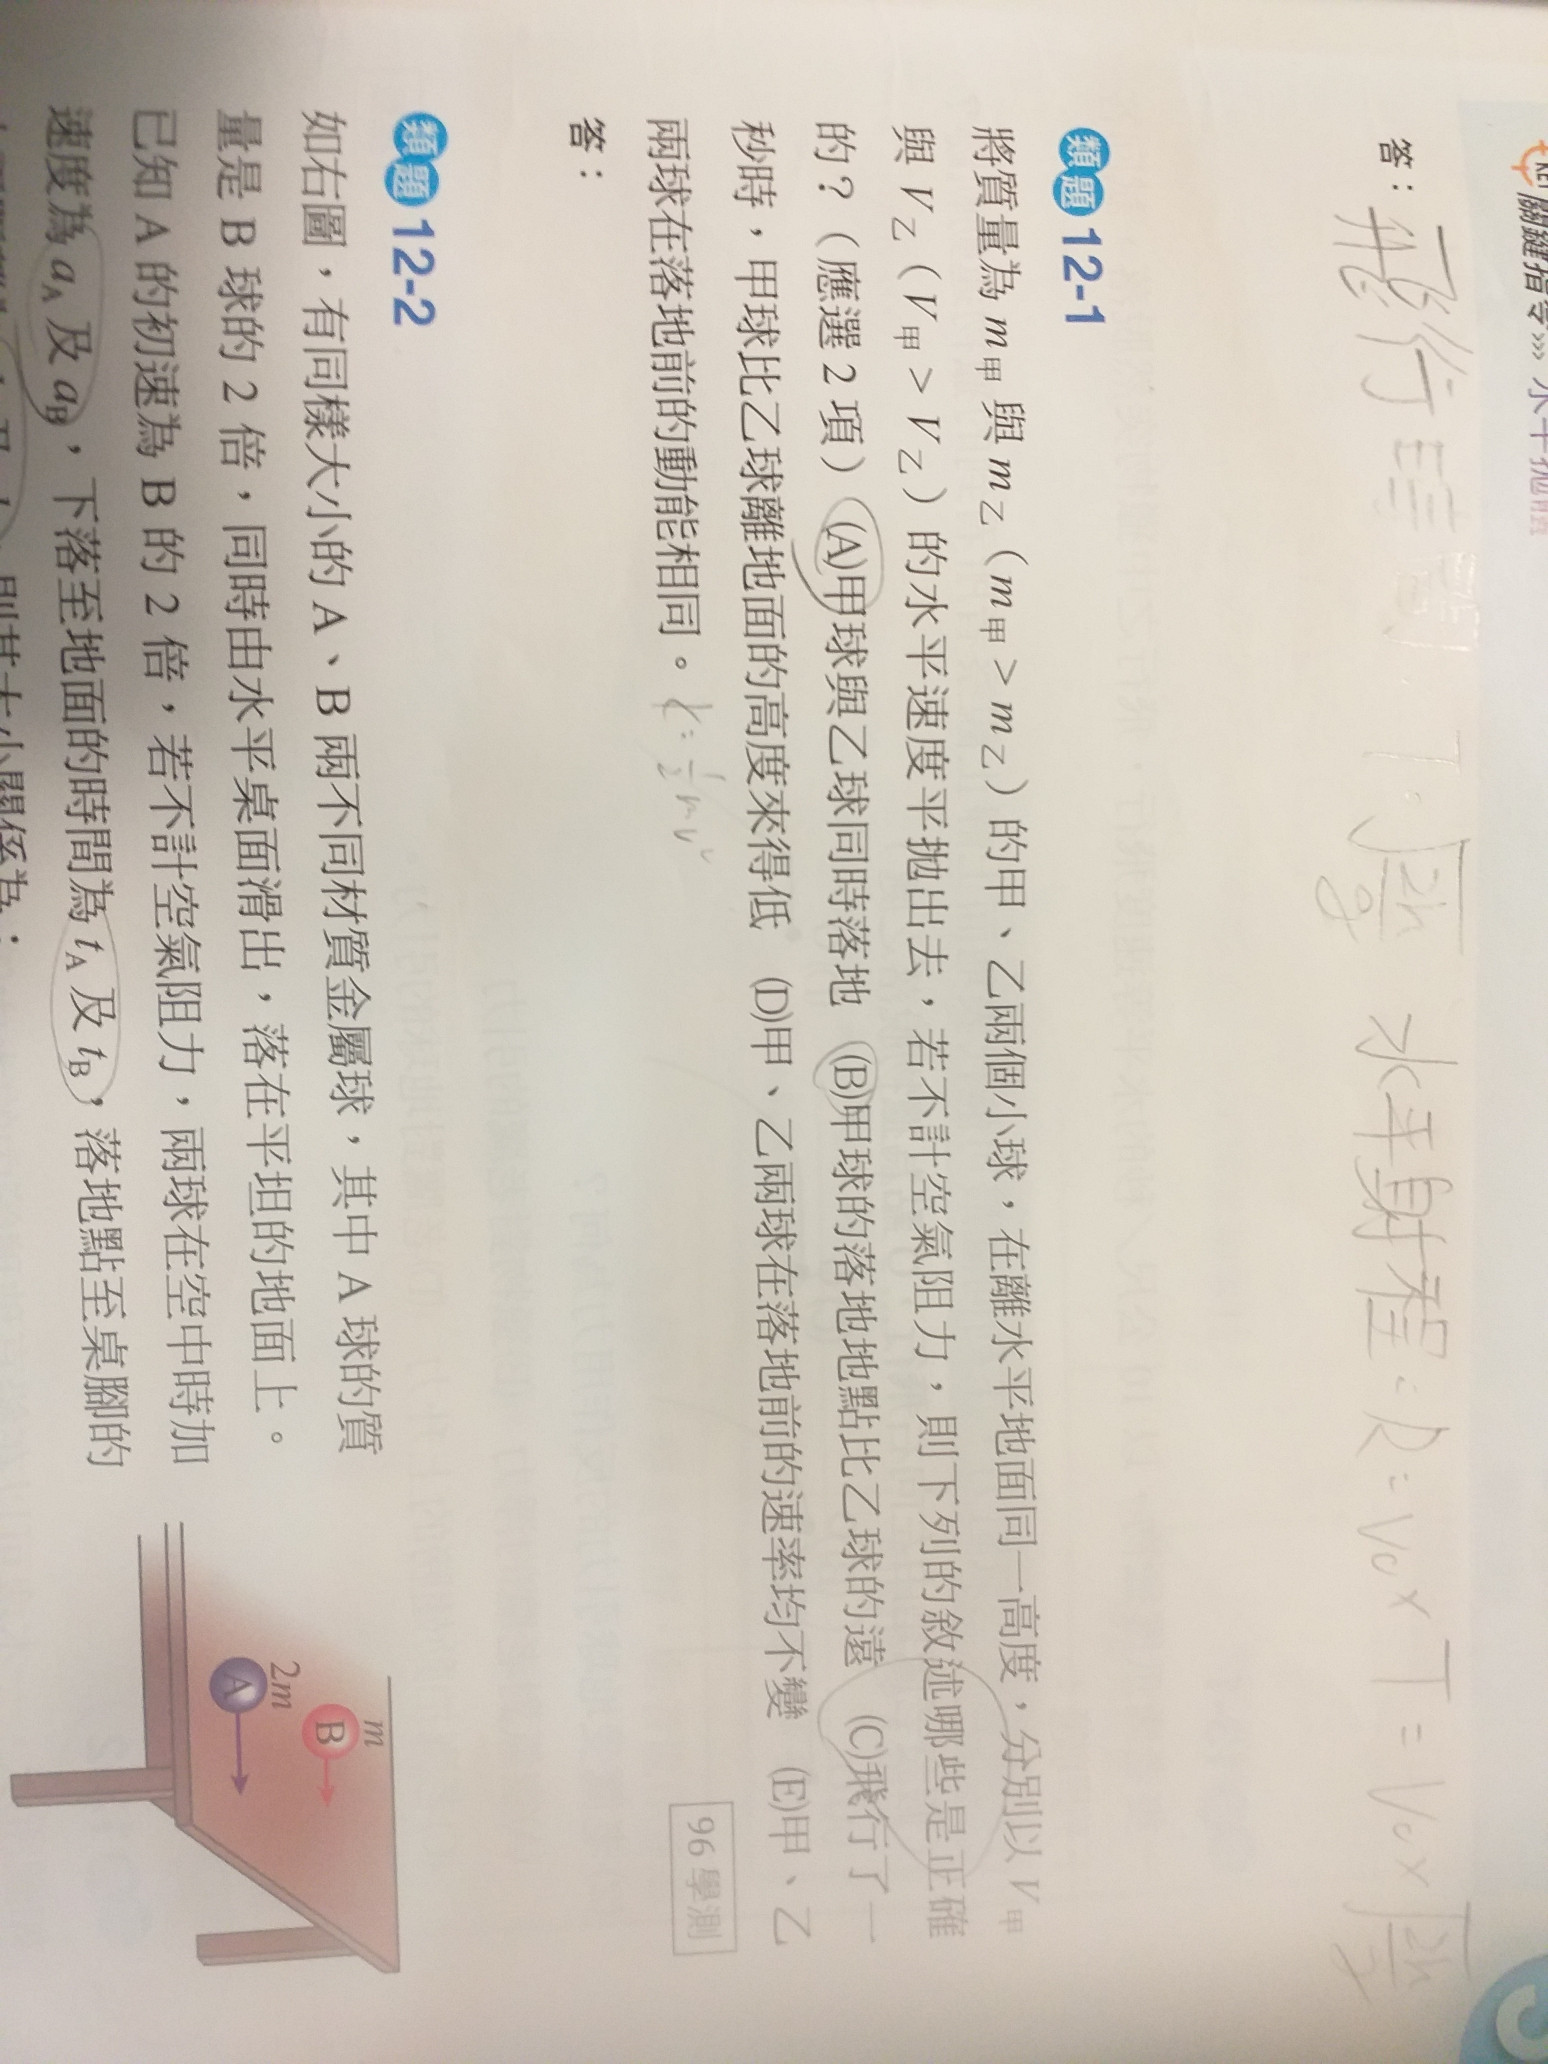 關鍵指令>>> 水平拋體
答：飛行時間：T=√2h/g 水平射程：R=V0×T=V0×√2h/g
類題 12-1
將質量為 m甲 與 m乙（m甲 > m乙）的甲、乙兩個小球，在離水平地面同一高度，分別以 V甲
與 V乙（V甲 > V乙）的水平速度平拋出去，若不計空氣阻力，則下列的敘述哪些是正確
的？（應選 2 項） (A)甲球與乙球同時落地 (B)甲球的落地地點比乙球的遠 (C)飛行了一
秒時，甲球比乙球離地面的高度來得低 (D)甲、乙兩球在落地前的速率均不變 (E)甲、乙
兩球在落地前的動能相同。 k=½mv²
96 學測
答：
類題 12-2
如右圖，有同樣大小的 A、B 兩不同材質金屬球，其中 A 球的質
量是 B 球的 2 倍，同時由水平桌面滑出，落在平坦的地面上。
已知 A 的初速為 B 的 2 倍，若不計空氣阻力，兩球在空中時加
速度為 aA 及 aB，下落至地面的時間為 tA 及 tB，落地點至桌腳的
則其大小關係為：
m
B
2m
A